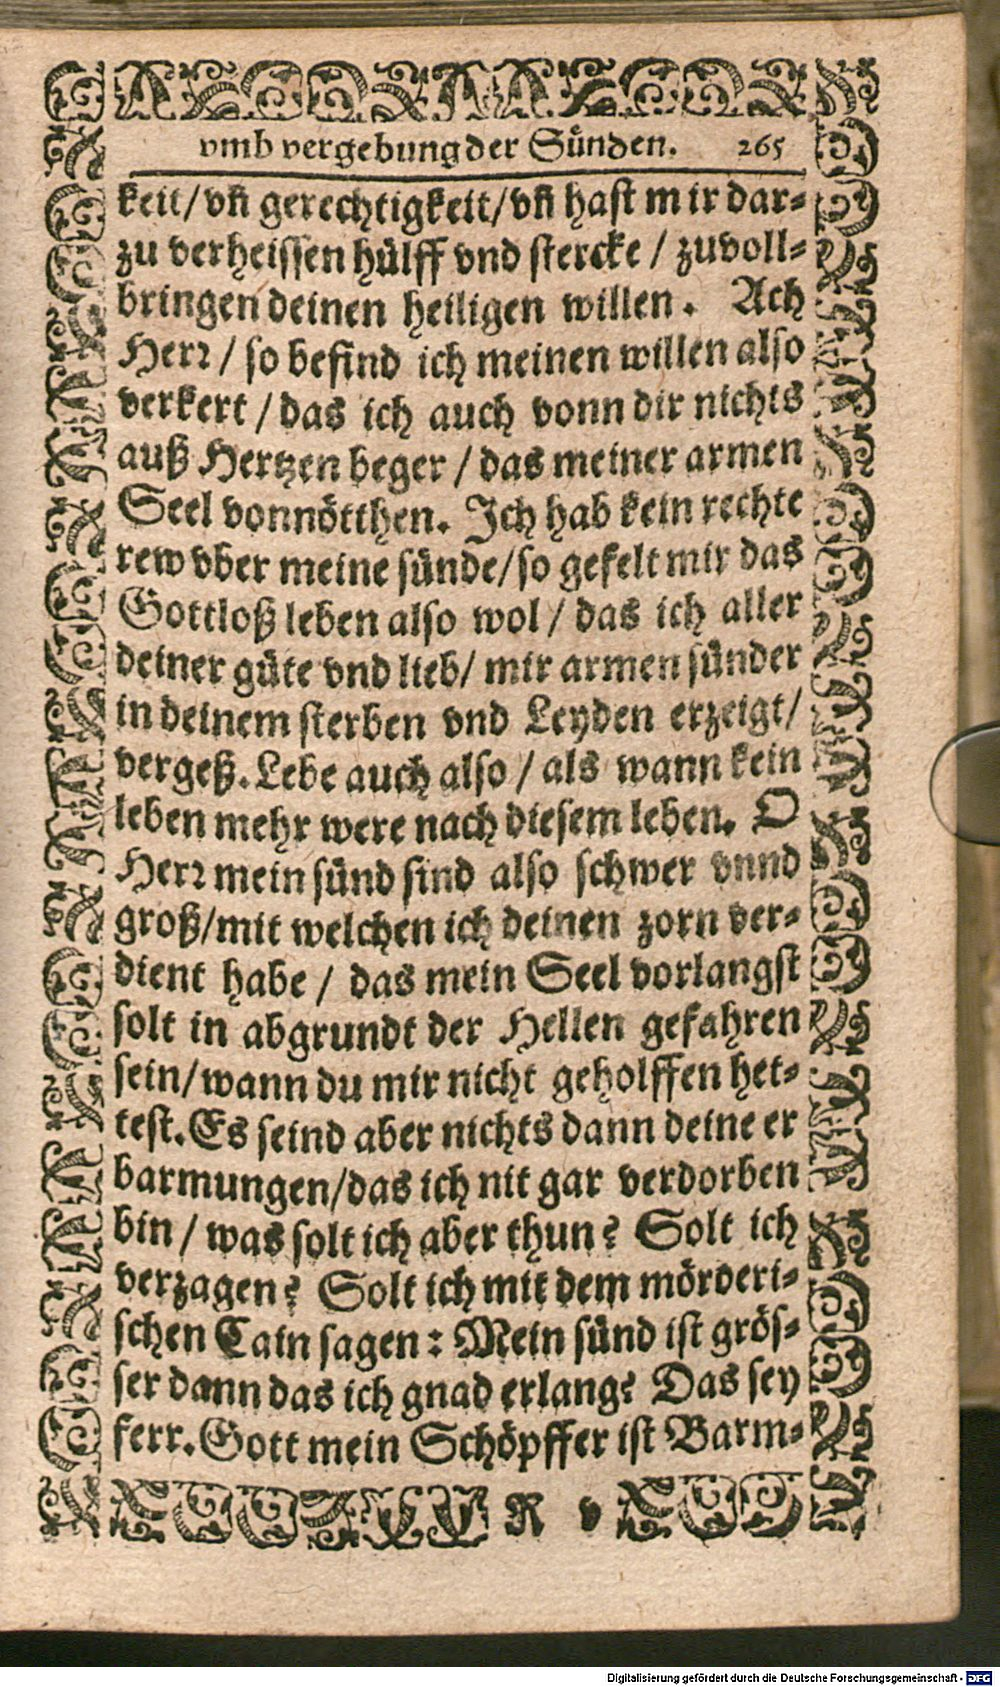 vmb vergebung der Sünden. 265
keit/ vñ gerechtigkeit/ vñ hast mir dar-
zu verheissen hülff vnd stercke / zuvoll-
bringen deinen heiligen willen. Ach
Herr / so befind ich meinen willen also
verkert / das ich auch vonn dir nichts
auß Hertzen beger / das meiner armen
Seel vonnötthen. Ich hab kein rechte
rew vber meine sünde/ so gefelt mir das
Gottloß leben also wol / das ich aller
deiner güte vnd lieb/ mir armen sünder
in deinem sterben vnd Leyden erzeigt/
vergeß. Lebe auch also / als wann kein
leben mehr were nach diesem leben. O
Herr mein sünd sind also schwer vnnd
groß/ mit welchen ich deinen zorn ver-
dient habe / das mein Seel vorlangst
solt in abgrundt der Hellen gefahren
sein/ wann du mir nicht geholffen het-
test. Es seind aber nichts dann deine er
barmungen/ das ich nit gar verdorben
bin / was solt ich aber thun? Solt ich
verzagen? Solt ich mit dem mörderi-
schen Cain sagen: Mein sünd ist grös-
ser dann das ich gnad erlang? Das sey
ferr. Gott mein Schöpffer ist Barm-
R v
Digitalisierung gefördert durch die Deutsche Forschungsgemeinschaft - DFG